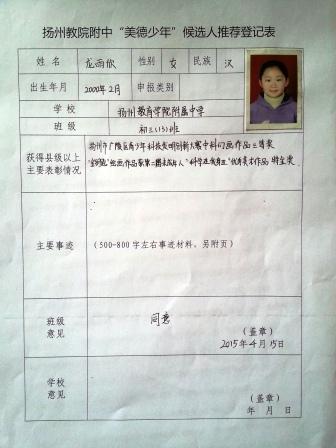 扬州教院附中“美德少年”候选人推荐登记表
姓 名 龙雨欣 性别 女 民族 汉
出生年月 2000年2月 申报类别
学 校 扬州教育学院附属中学
班 级 初三(3)班
获得县级以上 扬州市广陵区青少年科技发明创新大赛中科幻画作品三等奖
主要表彰情况 绘画作品获第 “科学在我身边”优秀美术作品 特金奖
主要事迹 (500-800字左右事迹材料,另附页)
班级
意见 同意
(盖章)
2015年4月15日
学校
意见
(盖章)
年 月 日